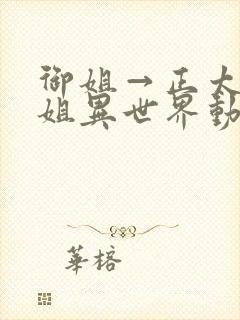 御姐→正太
姐異世界動
華榕